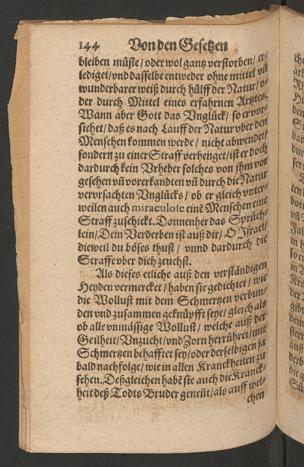 144 Von den Gesetzen
bleiben müste / oder wol gantz verstorben / er-
lediget / vnd dasselbe entweder ohne mittel vñ
wunderbarer weiß durch hülff der Natur / o-
der durch Mittel eines erfahrnen Artztes.
Wann aber Gott das Vnglück / so er vor-
siehet / daß es nach Lauff der Natur vber den
Menschen kommen werde / nicht abwendet /
sondern zu einer Straff verhenget / ist er doch
dardurch kein Vrheber solches von jhm vor-
gesehen vñ vorerkandten vñ durch die Natur
verursachten Vnglücks / ob er gleich vnter-
weilen auch miraculolè einē Menschen eine
Straff zuschickt. Dannenher das Sprüch-
lein / Dein Verderben ist auß dir / O Israel /
dieweil du böses thust / vnnd dardurch die
Straffe vber dich zeuchst.
Als dieses etliche auß den verständigen
Heyden vermercket / haben sie gedichtet / wie
die Wollust mit dem Schmertzen verbun-
den vnd zusammen geknüpfft seye / gleich als
ob alle vnmässige Wollust / welche auß der
Geilheit / Vnzucht / vnd Zorn herrühret / mit
Schmertzen behafftet sey / oder derselbigen ja
bald nachfolge / wie in allen Kranckheiten zu
sehen. Deßgleichen habē sie auch die Kranck-
heit deß Todts Bruder genent / als auff wel-
chen